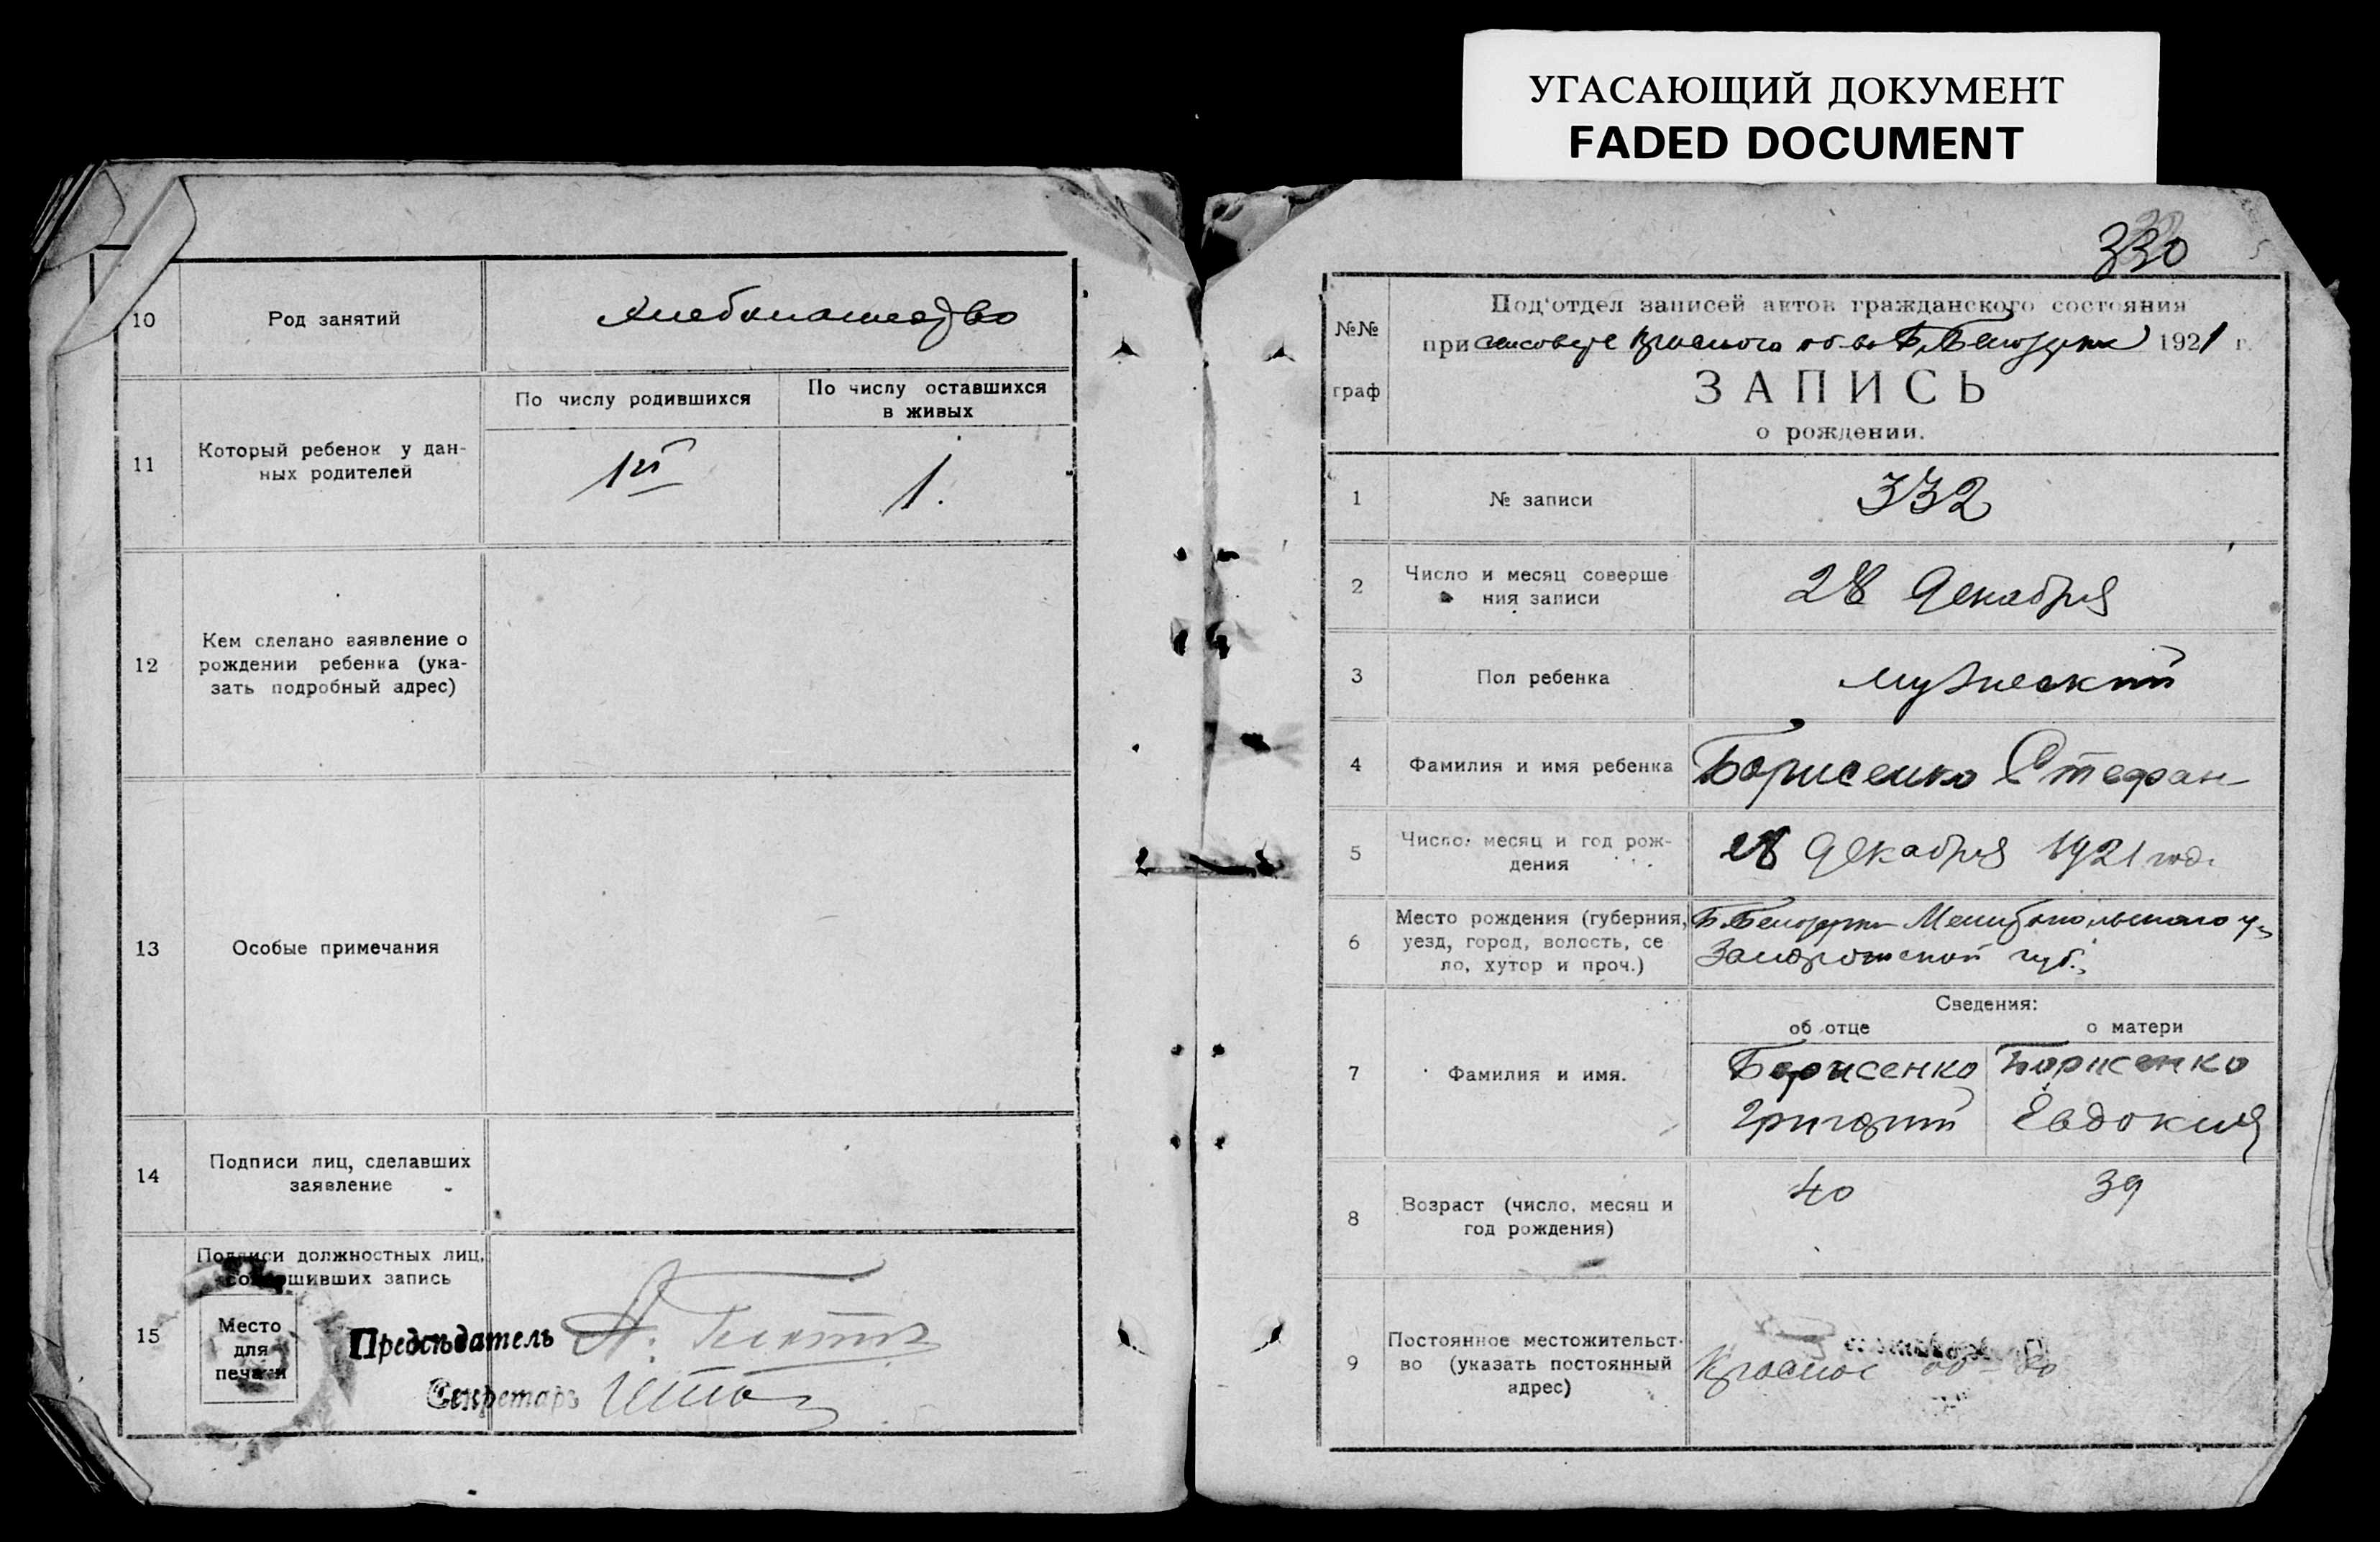 УГАСАЮЩИЙ ДОКУМЕНТ
FADED DOCUMENT
10
Род занятий
хлебопашество
11
Который ребенок у дан-
ных родителей
По числу родившихся
По числу оставшихся
в живых
1й
1.
12
Кем сделано заявление о
рождении ребенка (ука-
зать подробный адрес)
13
Особые примечания
14
Подписи лиц, сделавших
заявление
15
Подписи должностных лиц,
совершивших запись
Место
для
печати
Председатель
Секретарь
330
№№
граф
Под'отдел записей актов гражданского состояния
при сельсовете Красного об-ва Б. Белозерки 1921 г.
ЗАПИСЬ
о рождении.
1
№ записи
332
2
Число и месяц соверше
ния записи
28 Декабря
3
Пол ребенка
мужеский
4
Фамилия и имя ребенка
Борисенко Стефан
5
Число, месяц и год рож-
дения
28 Декабря 1921 год.
6
Место рождения (губерния,
уезд, город, волость, се
ло, хутор и проч.)
Б. Белозерки Мелитопольского у.,
Запорожской губ.,
Сведения:
об отце
о матери
7
Фамилия и имя.
Борисенко
Григорий
Борисенко
Евдокия
8
Возраст (число, месяц и
год рождения)
40
39
9
Постоянное местожительст-
во (указать постоянный
адрес)
Красное об-во